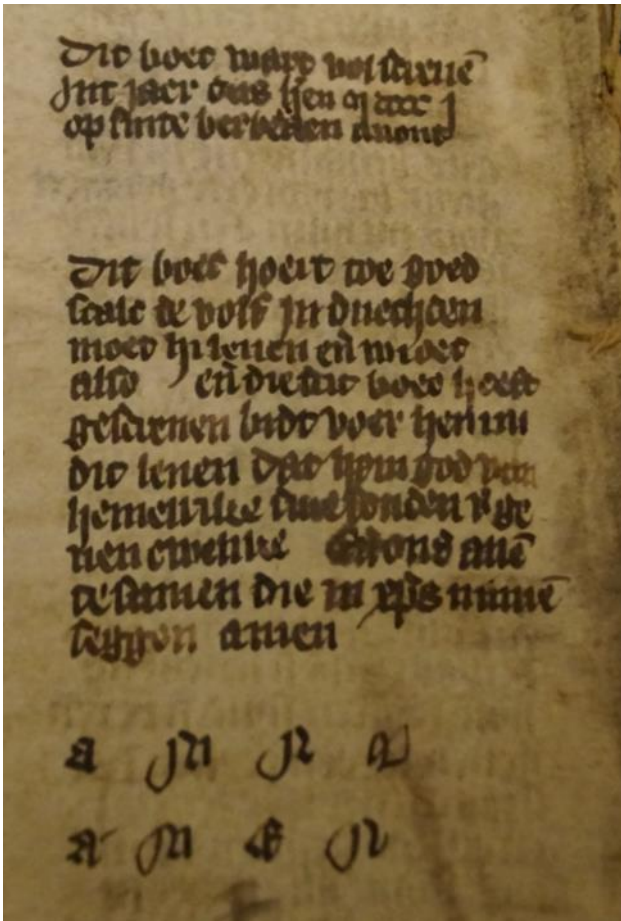 Dit boec wart volscreuē
Int jaer ons hen m cccc j
op sinte berbelen auont
Dit boec hoert toe goed
scalc de volf In duechten
moet hi leuen eñ mroet
also eñ die dit boec heeft
gescreuen bidt voer hem in
dit leuen dat hem god van
hemelrike sine sonden v'ge
uen ewelike Eñ ons allē
te samen die in xp̄s namē
seggen amen
a m
a m e n